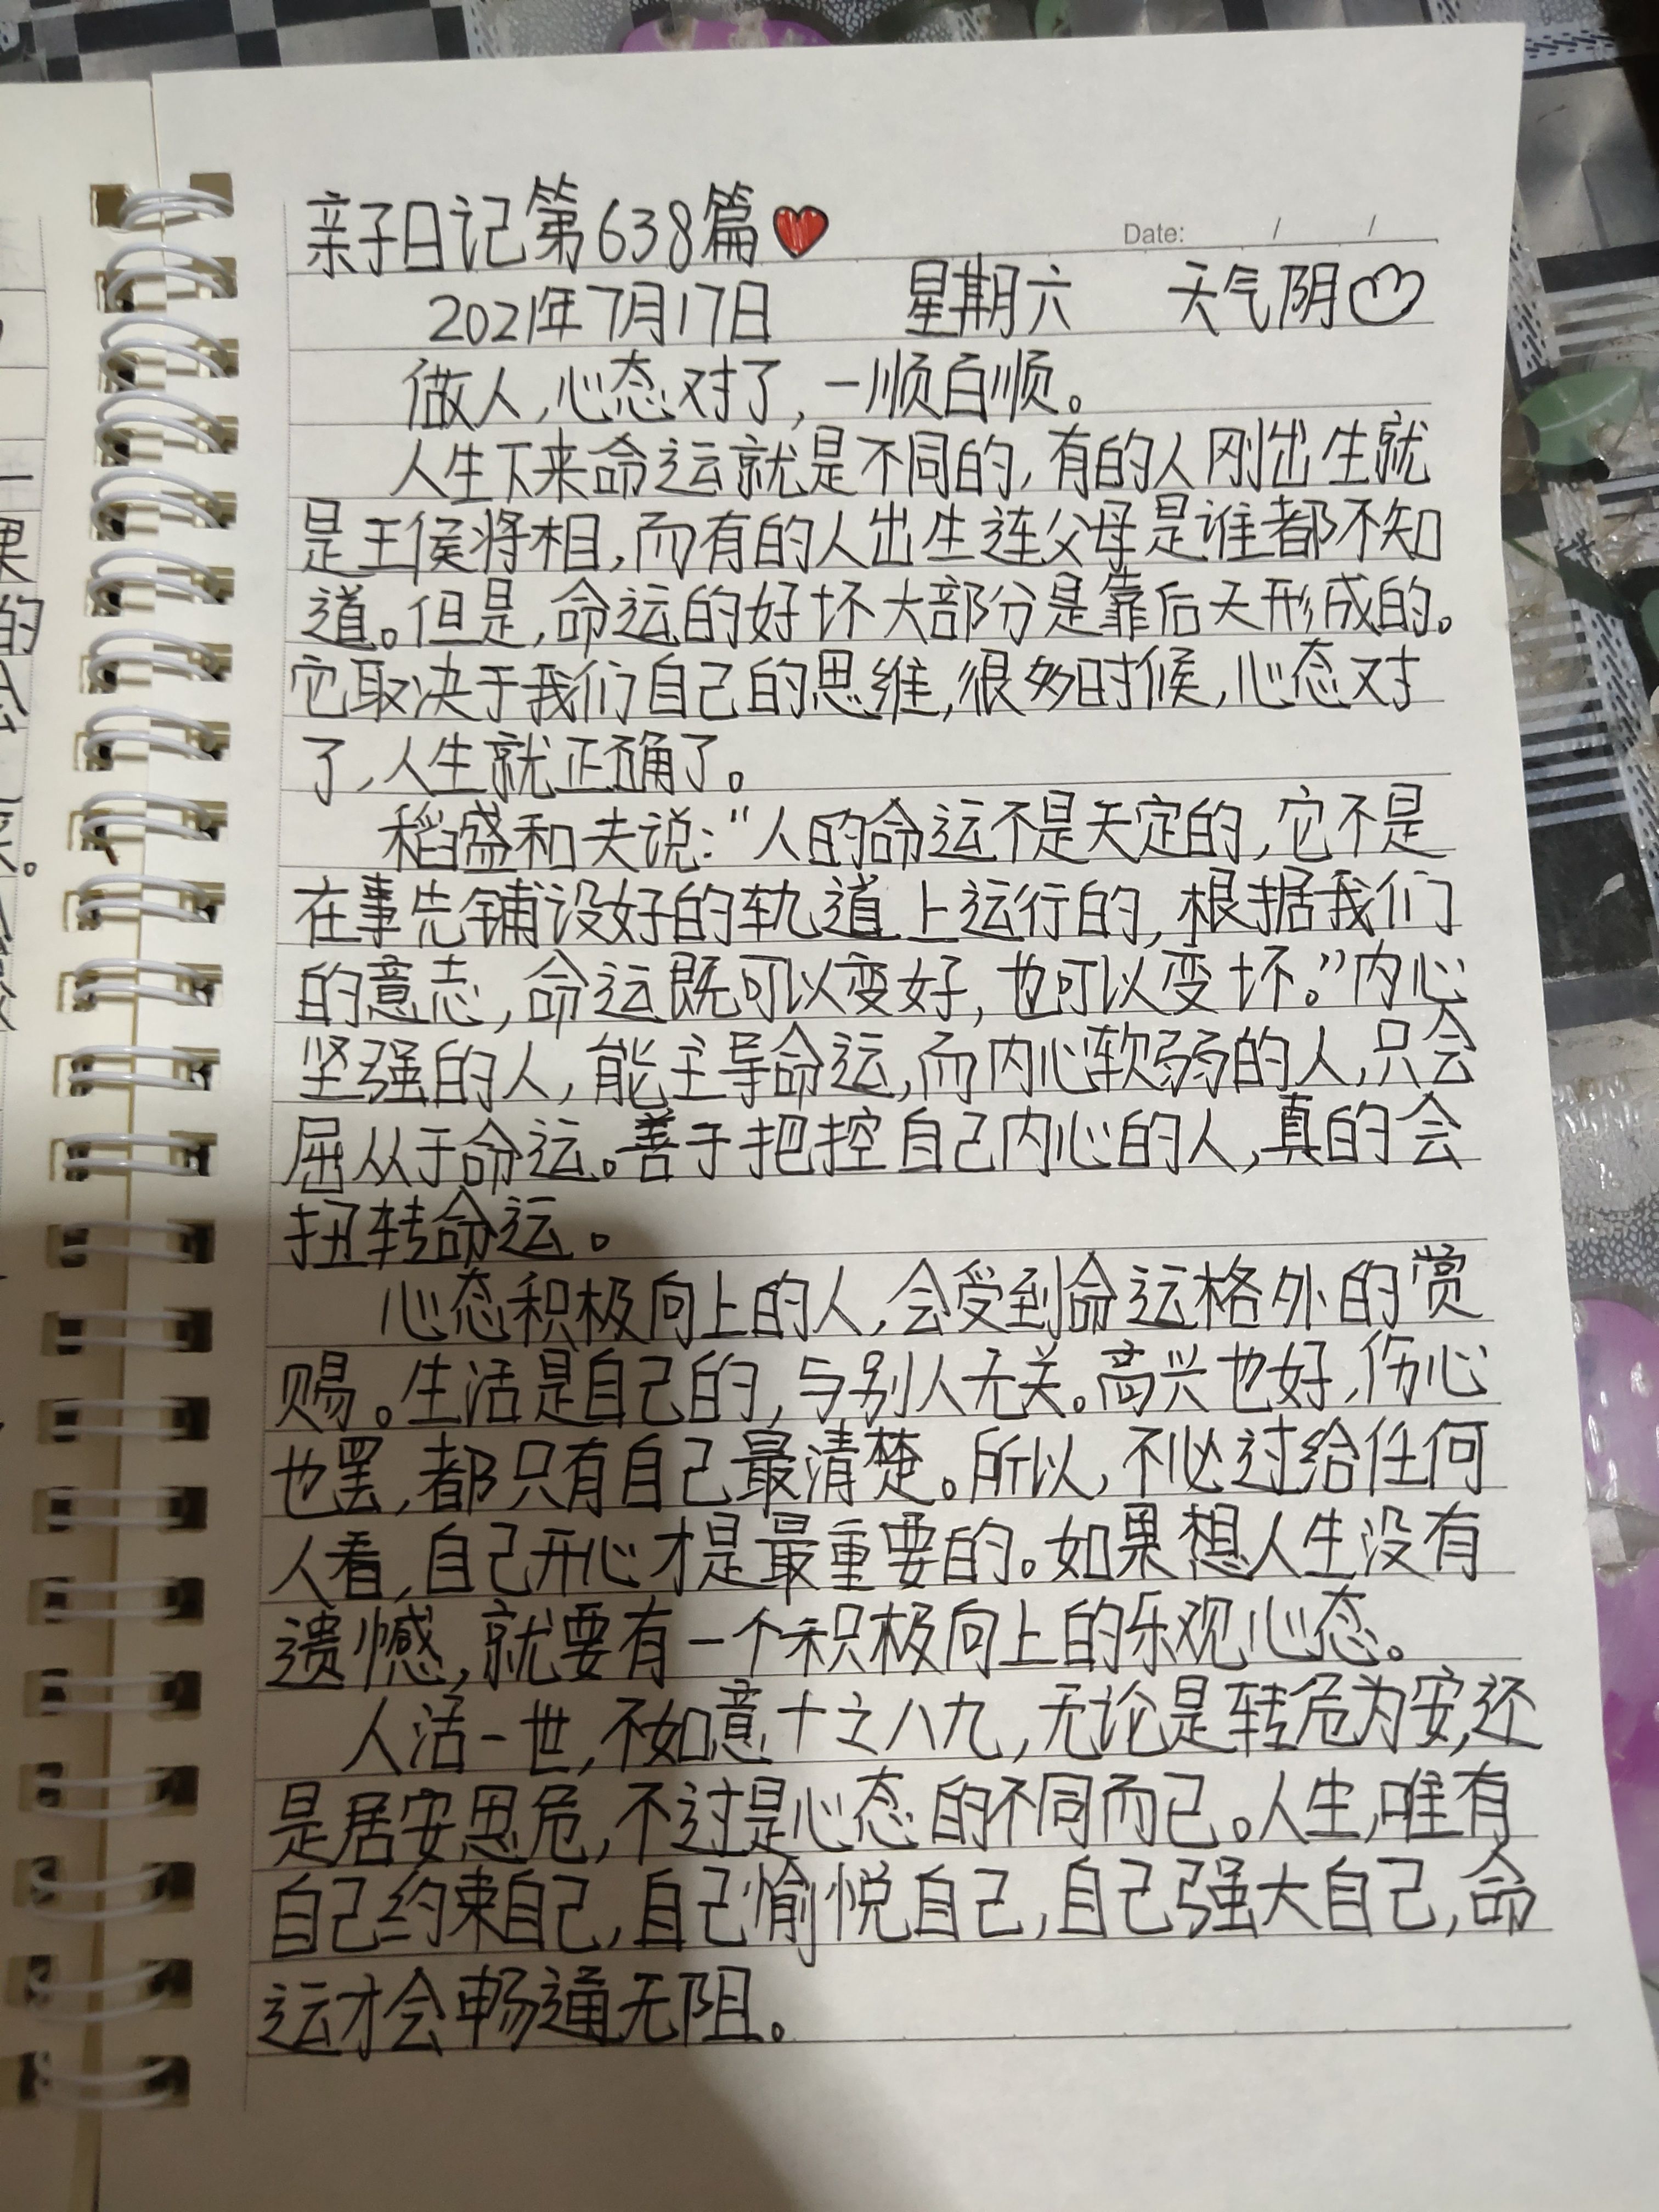 亲子日记第638篇
Date: / /
2021年7月17日 星期六 天气阴
做人,心态对了,一顺百顺。
人生下来命运就是不同的,有的人刚出生就
是王侯将相,而有的人出生连父母是谁都不知
道。但是,命运的好坏大部分是靠后天形成的。
它取决于我们自己的思维,很多时候,心态对
了,人生就正确了。
稻盛和夫说:“人的命运不是天定的,它不是
在事先铺设好的轨道上运行的,根据我们
的意志,命运既可以变好,也可以变坏。”内心
坚强的人,能主导命运,而内心软弱的人,只会
屈从于命运。善于把控自己内心的人,真的会
扭转命运。
心态积极向上的人,会受到命运格外的赏
赐。生活是自己的,与别人无关。高兴也好,伤心
也罢,都只有自己最清楚。所以,不必过给任何
人看,自己开心才是最重要的。如果想人生没有
遗憾,就要有一个积极向上的乐观心态。
人活一世,不如意十之八九,无论是转危为安,还
是居安思危,不过是心态的不同而已。人生,唯有
自己约束自己,自己愉悦自己,自己强大自己,命
运才会畅通无阻。